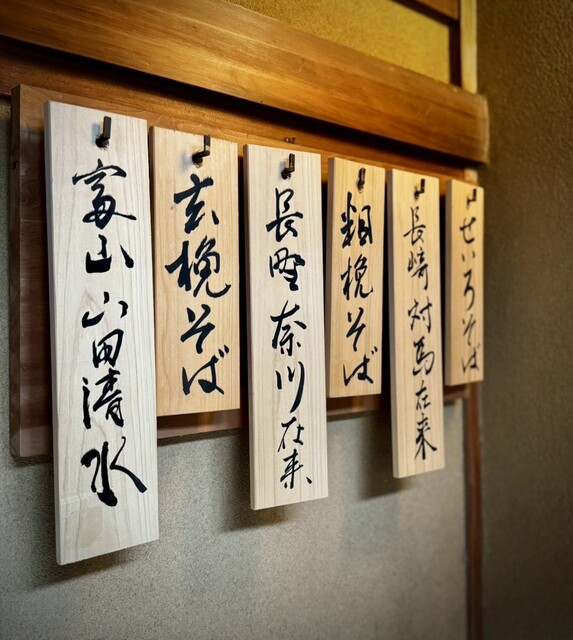 せいろそば
長崎対馬在来
粗挽そば
長野奈川在来
玄挽そば
富山山田清水